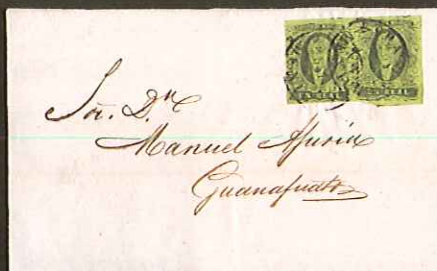 UN REAL UN REAL
Sr. Dn
Manuel Ajuria
Guanajuato